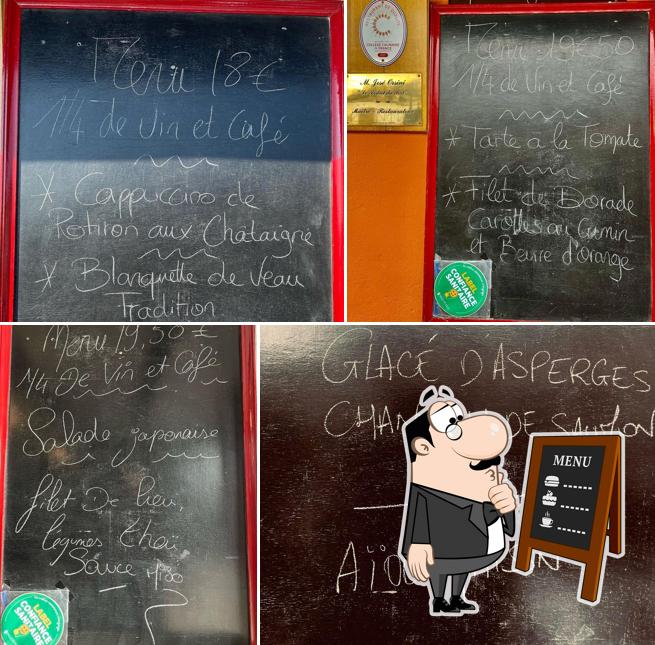 Menu 18€
1/4 de Vin et Café
* Cappuccino de
Potiron aux Chataigne
* Blanquette de Veau
Tradition
COLLÈGE CULINAIRE
M. José Orsini
Maître-Restaurateur
Menu 19€50
1/4 de Vin et Café
* Tarte a la Tomate
* Filet de Dorade
Carottes au Cumin
et Beurre d'Orange
LABEL
CONFIANCE
SANITAIRE
Menu 19,50 €
1/4 De Vin et Café
Salade japonaise
filet De lieu,
légumes thaï
Sauce
LABEL
CONFIANCE
SANITAIRE
GLACÉ D'ASPERGES
DE
MENU